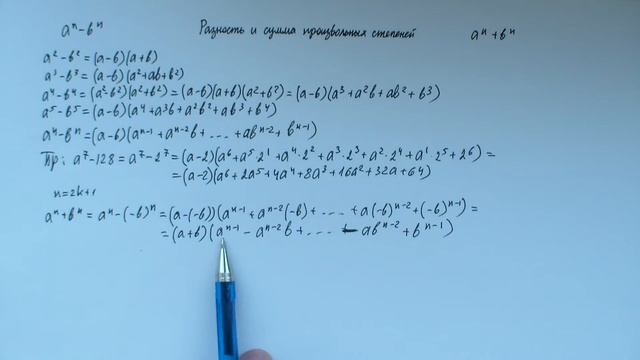 aⁿ-bⁿ Разность и сумма произвольных степеней aⁿ+bⁿ
a²-b²=(a-b)(a+b)
a³-b³=(a-b)(a²+ab+b²)
a⁴-b⁴=(a²-b²)(a²+b²)=(a-b)(a+b)(a²+b²)=(a-b)(a³+a²b+ab²+b³)
a⁵-b⁵=(a-b)(a⁴+a³b+a²b²+ab³+b⁴)
aⁿ-bⁿ=(a-b)(aⁿ⁻¹+aⁿ⁻²b+...+abⁿ⁻²+bⁿ⁻¹)
Пр: a⁷-128=a⁷-2⁷=(a-2)(a⁶+a⁵·2¹+a⁴·2²+a³·2³+a²·2⁴+a¹·2⁵+2⁶)=
=(a-2)(a⁶+2a⁵+4a⁴+8a³+16a²+32a+64)
n=2k+1
aⁿ+bⁿ=aⁿ-(-b)ⁿ=(a-(-b))(aⁿ⁻¹+aⁿ⁻²(-b)+...+a(-b)ⁿ⁻²+(-b)ⁿ⁻¹)=
=(a+b)(aⁿ⁻¹-aⁿ⁻²b+...-abⁿ⁻²+bⁿ⁻¹)